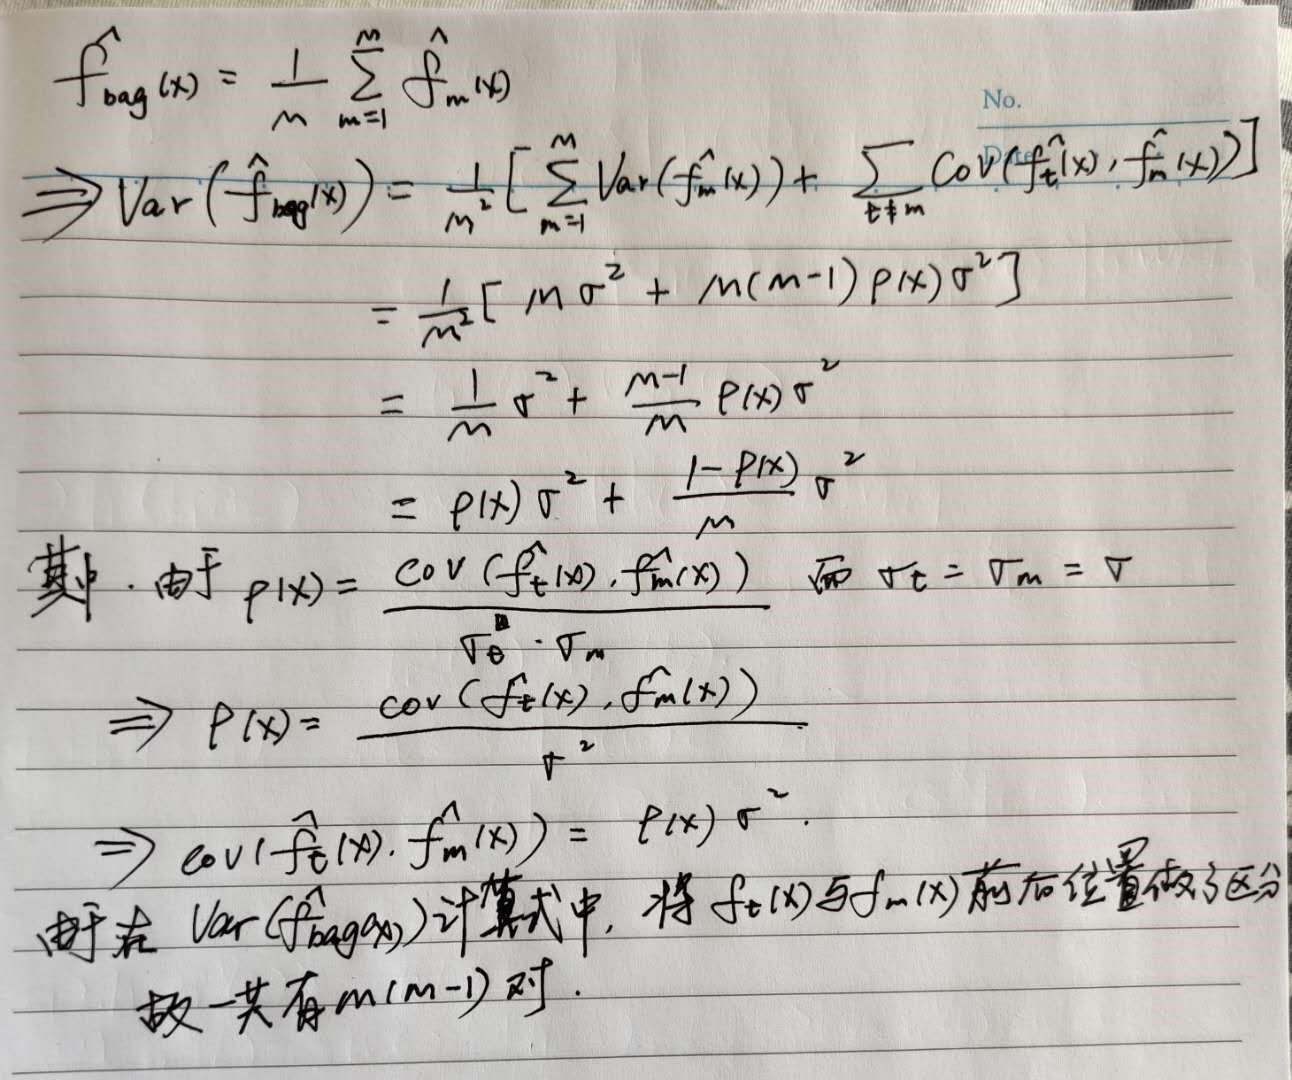 f̂bag(x) = 1/M Σ_{m=1}^{M} f̂m(x)
No.
Date
⇒ Var(f̂bag(x)) = 1/M² [Σ_{m=1}^{M} Var(f̂m(x)) + Σ_{t≠m} Cov(f̂t(x), f̂m(x))]
= 1/M² [Mσ² + M(M-1)ρ(x)σ²]
= 1/M σ² + (M-1)/M ρ(x)σ²
= ρ(x)σ² + (1-ρ(x))/M σ²
其中. 由于 ρ(x) = cov(f̂t(x), f̂m(x)) / (σt · σm) 而 σt = σm = σ
⇒ ρ(x) = cov(f̂t(x), f̂m(x)) / σ²
⇒ cov(f̂t(x), f̂m(x)) = ρ(x)σ².
由于在 Var(f̂bag(x)) 计算式中, 将 ft(x) 与 fm(x) 前后位置做了区分
故一共有 m(m-1) 对.